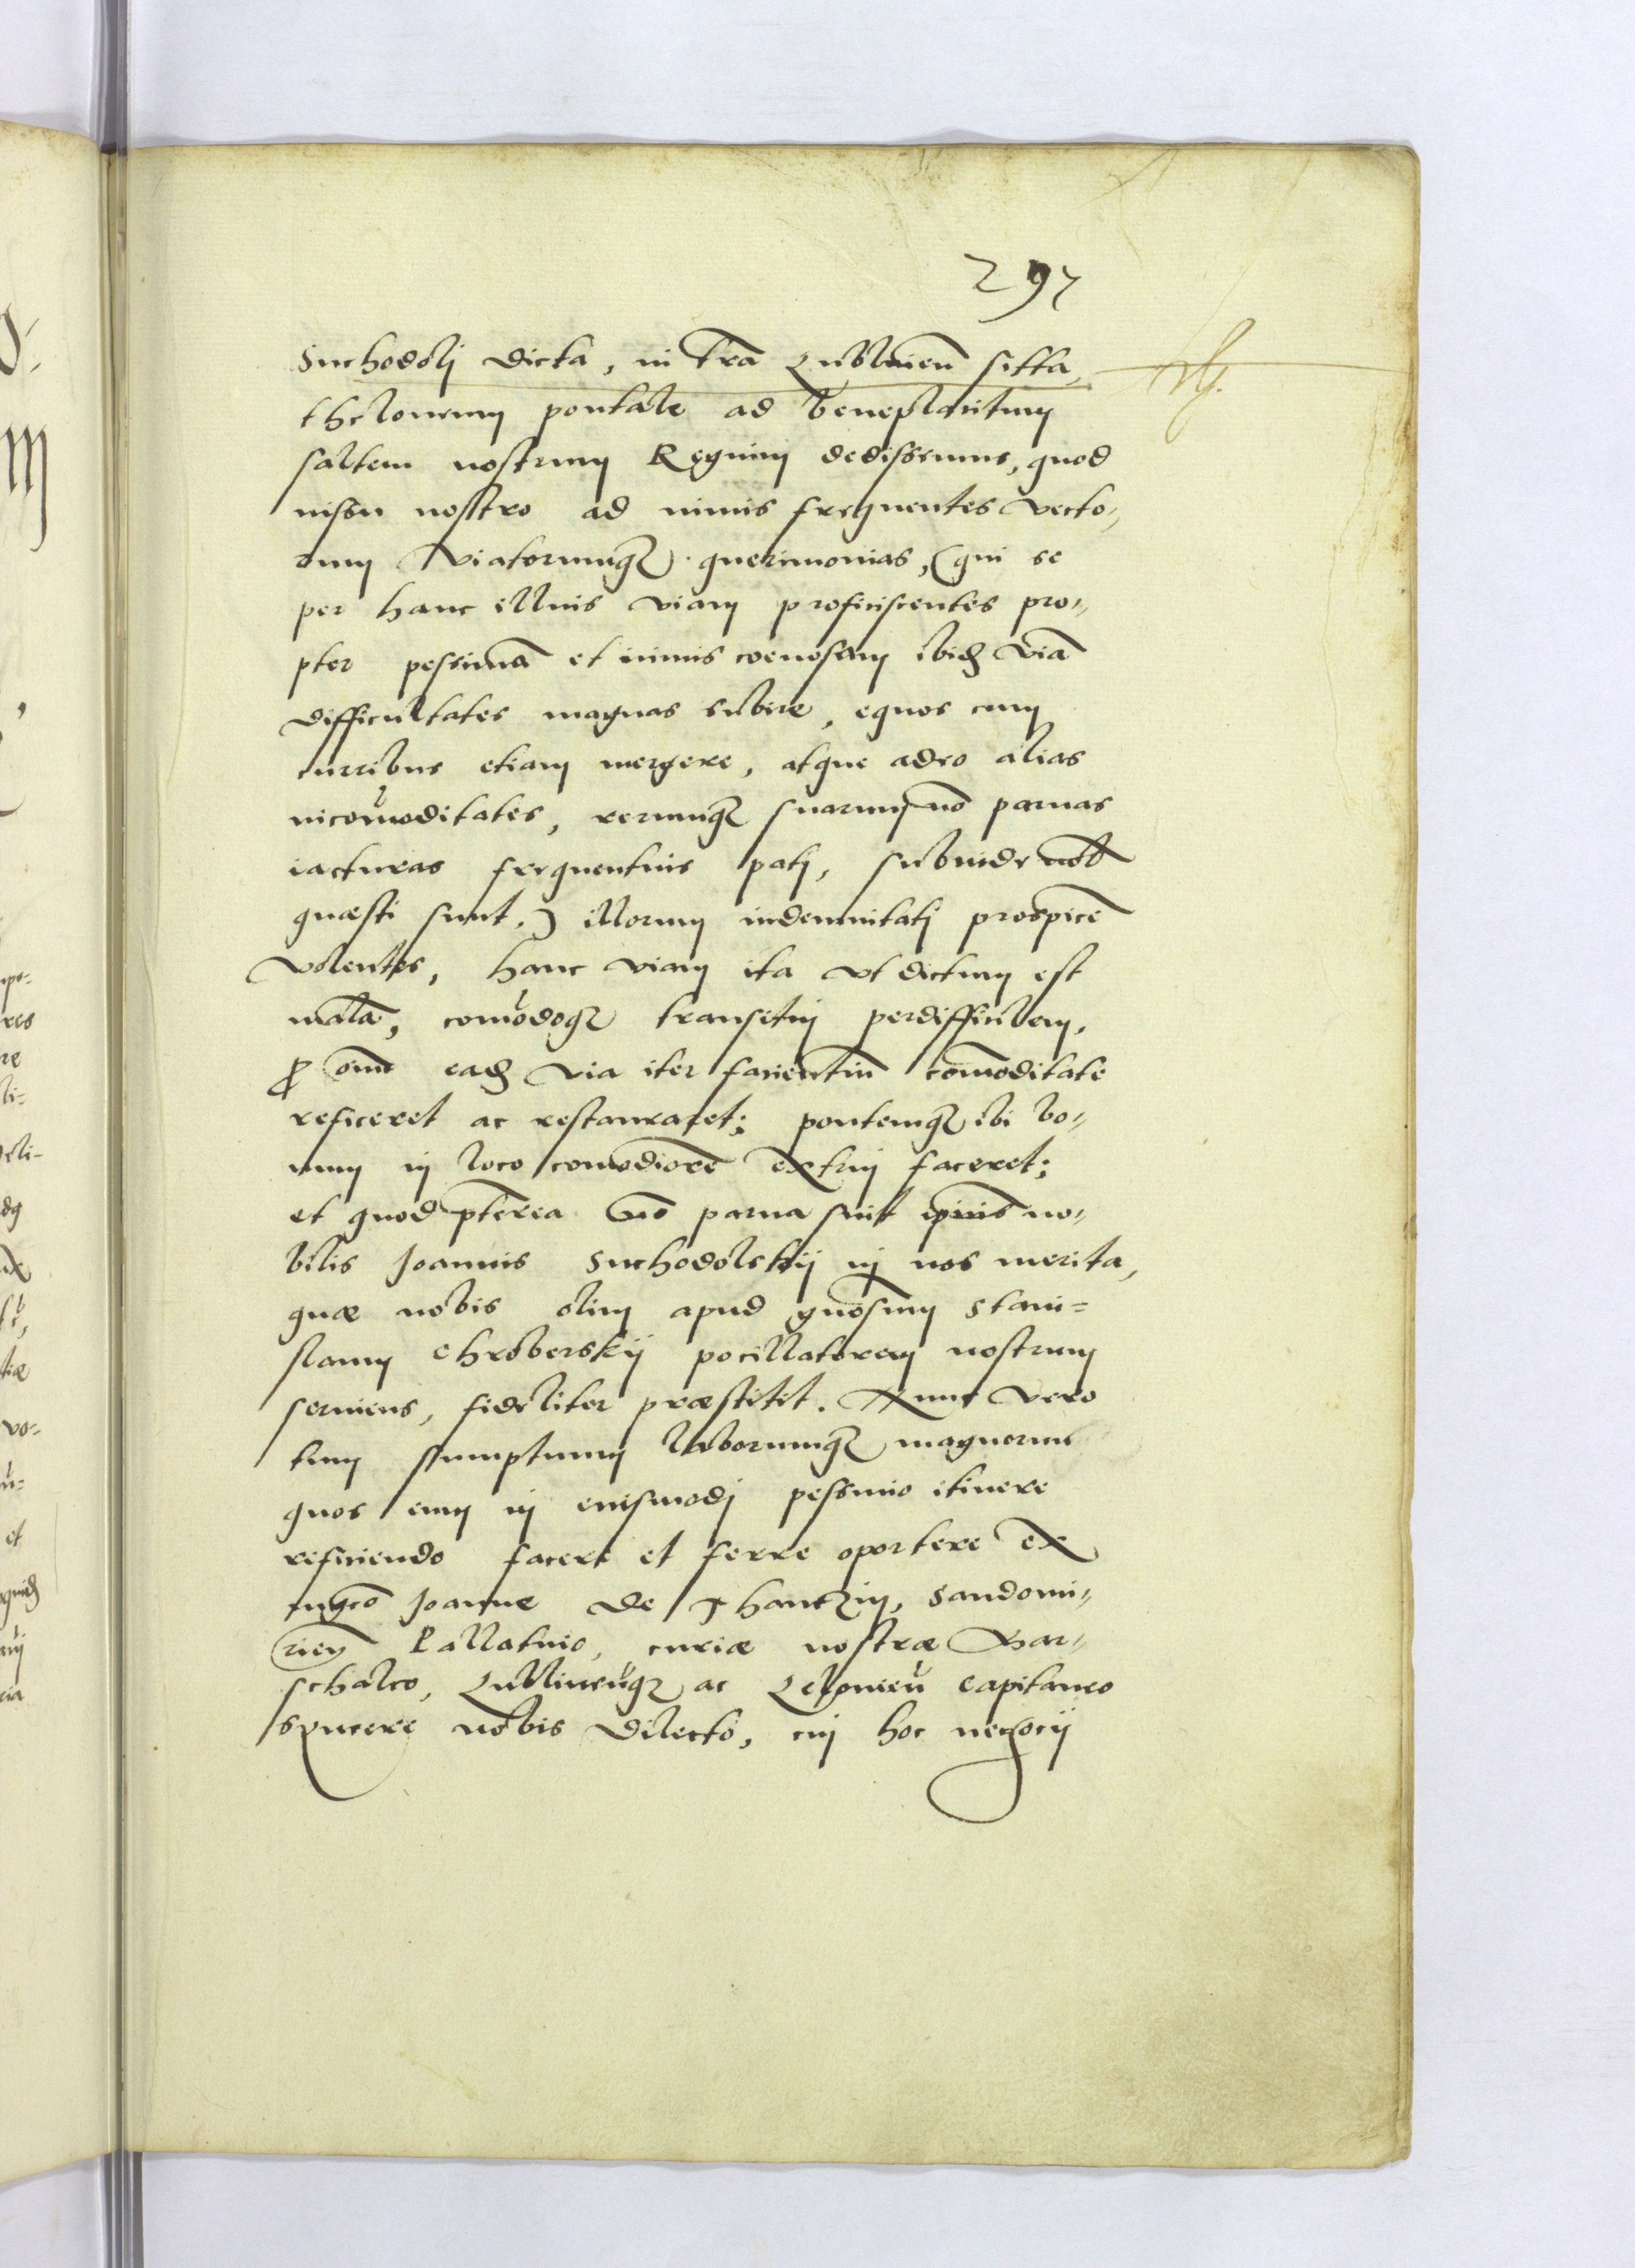 297
Suchodolj dicta, in t̄ra Lublineñ sitta,
theloneum pontale ad beneplacitum
saltem nostrum Regium dedissemus, quod
iussu nostro ad nimis frequentes vecto„
rum Viatorumq3 querimonias, (qui se
per hanc illuis viam proficiscentes pro„
pter pessimā et nimis coenosam ibid viā
difficultates magnas subire, equos cum
curribus etiam mergere, atque adeo alias
incom̃oditates, rerumq3 suarum nō paruas
iacturas frequentius patj, subinde nob
quæsti sunt.) illorum indemnitatj prospicē
volentes, hanc viam ita vt dictum est
malā, com̃odoq3 transitui perdifficilem,
p oīm ead via iter facientiū com̃oditate
reficeret ac restauraret; pontemq3 ibi bo„
num in loco comodiorē extrui faceret;
et quod p̄terea nō parua sint ip̄ius no„
bilis Joannis Suchodolskij in nos merita,
quæ nobis olim apud gn̄osum Stani=
slaum Chroberskij pocillatorem nostrum
seruiens, fideliter præstitit. Nunc vero
tum sumptuum laborumq3 magnorum
quos eum in eiusmodj pessimo itinere
reficiendo facere et ferre oportere ex
mgco Joanne de Thanczin, Sandomi„
rien Pallatino, curiæ nostræ Mar„
schalco, Lublineñq3 ac Lelovieñ Capitaneo
syncere nobis dilecto, cui hoc negocij